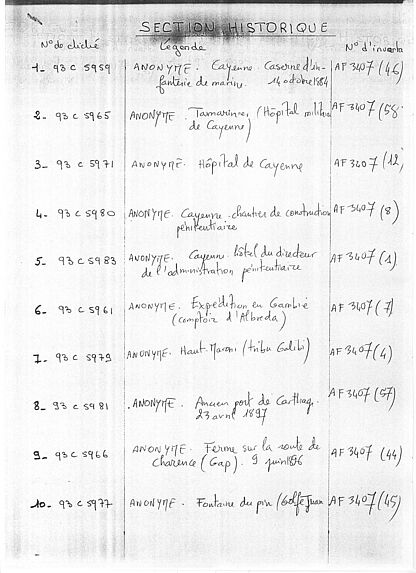 SECTION HISTORIQUE
N° de cliché Légende N° d'inventa
1- 93 C 5959 ANONYME. Cayenne. Caserne d'in- AF 3407 (46)
fanterie de marine. 14 octobre 1884
2- 93 C 5965 ANONYME. Tamariniers (Hôpital militai AF 3407 (58
de Cayenne)
3- 93 C 5971 ANONYME. Hôpital de Cayenne AF 3407 (12)
4- 93 C 5980 ANONYME. Cayenne. chantier de construction AF 3407 (8)
pénitentiaire
5- 93 C 5983 ANONYME. Cayenne. hôtel du directeur AF 3407 (1)
de l'administration pénitentiaire
6- 93 C 5961 ANONYME. Expédition en Gambie AF 3407 (7)
(comptoir d'Albreda)
7- 93 C 5979 ANONYME. Haut-Maroni (tribu Galibi) AF 3407 (4)
8- 93 C 5981 ANONYME. Ancien port de Carthag. AF 3407 (57)
23 avril 1897
9- 93 C 5966 ANONYME. Ferme sur la route de AF 3407 (44)
Charence (Gap). 9 juin 1896
10- 93 C 5977 ANONYME. Fontaine du pin (Golfe Juan AF 3407 (45)